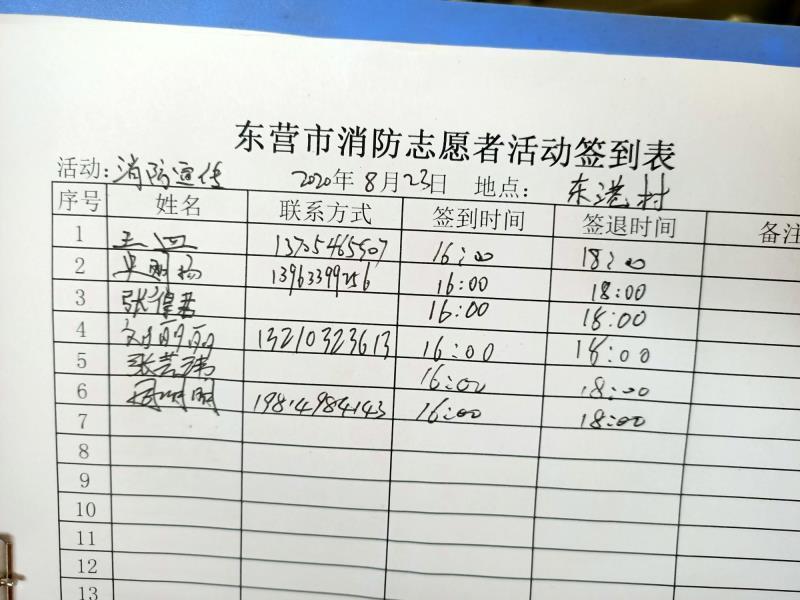 东营市消防志愿者活动签到表
活动: 消防宣传 2020年 8月23日 地点: 东港村
序号 姓名 联系方式 签到时间 签退时间 备注
1 王四 13705465507 16:00 18:00
2 13963399256 16:00 18:00
3 16:00 18:00
4 刘丽丽 13210323613 16:00 18:00
5 张芸玮 16:00 18:00
6 周明明 19814984143 16:00 18:00
7
8
9
10
11
12
13